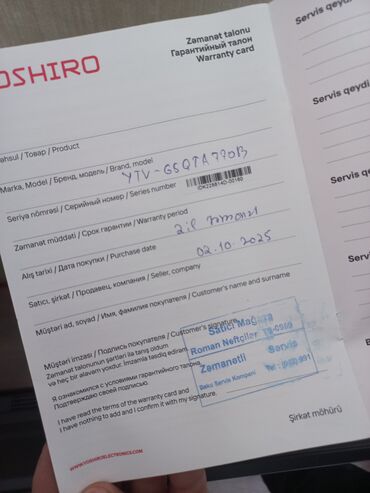 OSHIRO
Zəmanət talonu
Гарантийный талон
Warranty card
əhsul / Товар / Product
Marka, Model / Бренд, модель / Brand, model
YTV-65QTA770B
Seriya nömrəsi / Серийный номер / Series number
Zəmanət müddəti / Срок гарантии / Warranty period
2 il
Alış tarixi / Дата покупки / Purchase date
02.10.2025
Satıcı, şirkət / Продавец, компания / Seller, company
Müştəri ad, soyad / Имя, фамилия покупателя / Customer's name and surname
Müştəri imzası / Подпись покупателя / Customer's signature
Zəmanət talonunun şərtləri ilə tanış oldum
və heç bir əlavəm yoxdur. İmzamla təsdiq edirəm.
Я ознакомился с условиями гарантийного талона
Подтверждаю своей подписью.
I have read the terms of the warranty card and
I have nothing to add and I confirm it with my signature.
Satıcı Mağaza
Roman Neftçilər
Zəmanətli Servis
Bakı Servis Kompani Tel:
Şirkət möhürü
WWW.YOSHIROELECTRONICS.COM
Servis qeydi
Servis qeydi
Servis qe
Servis
Ser
S